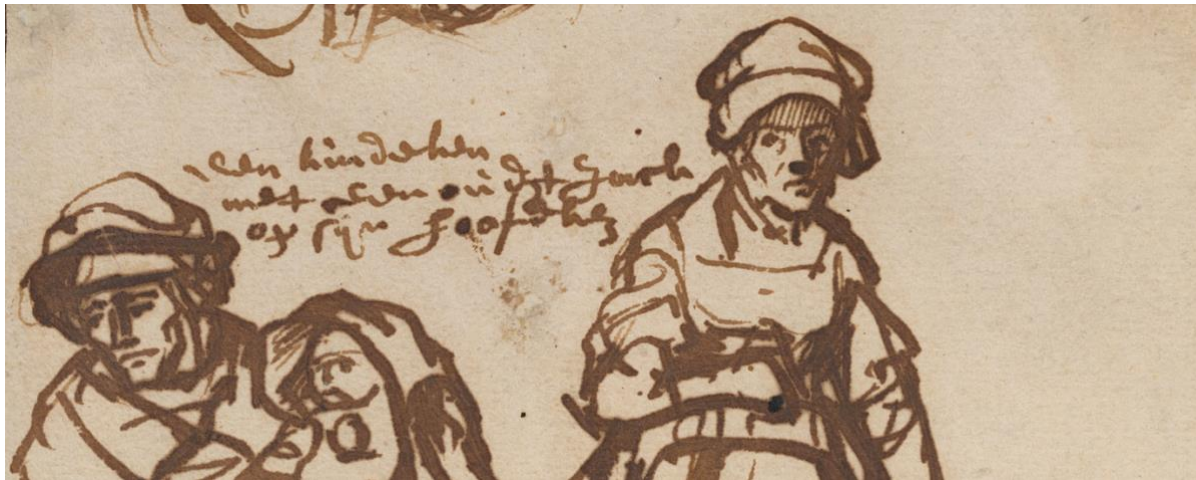 een kindeken
met een oudt jack
op sijn hoofdken